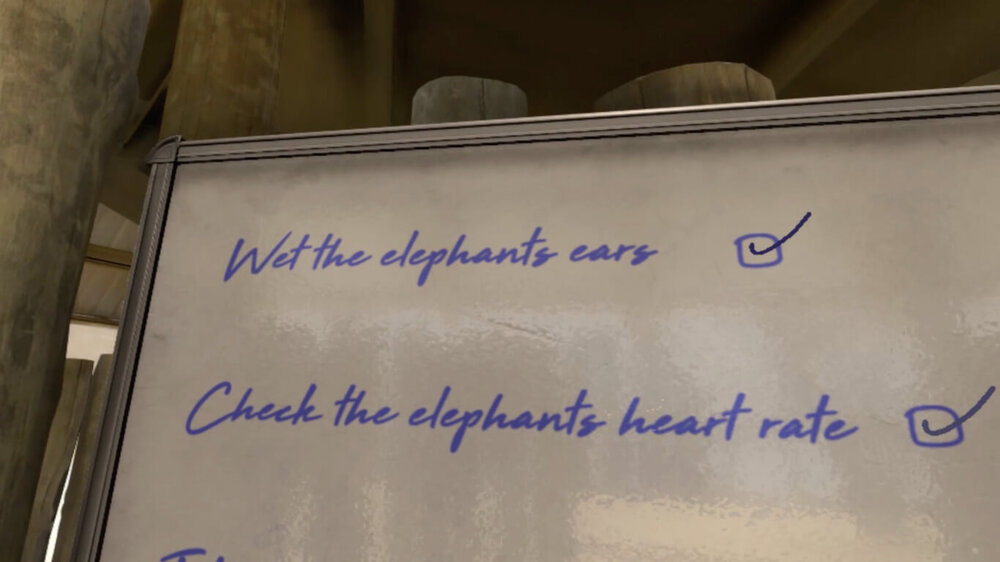 Wet the elephants ears
Check the elephants heart rate